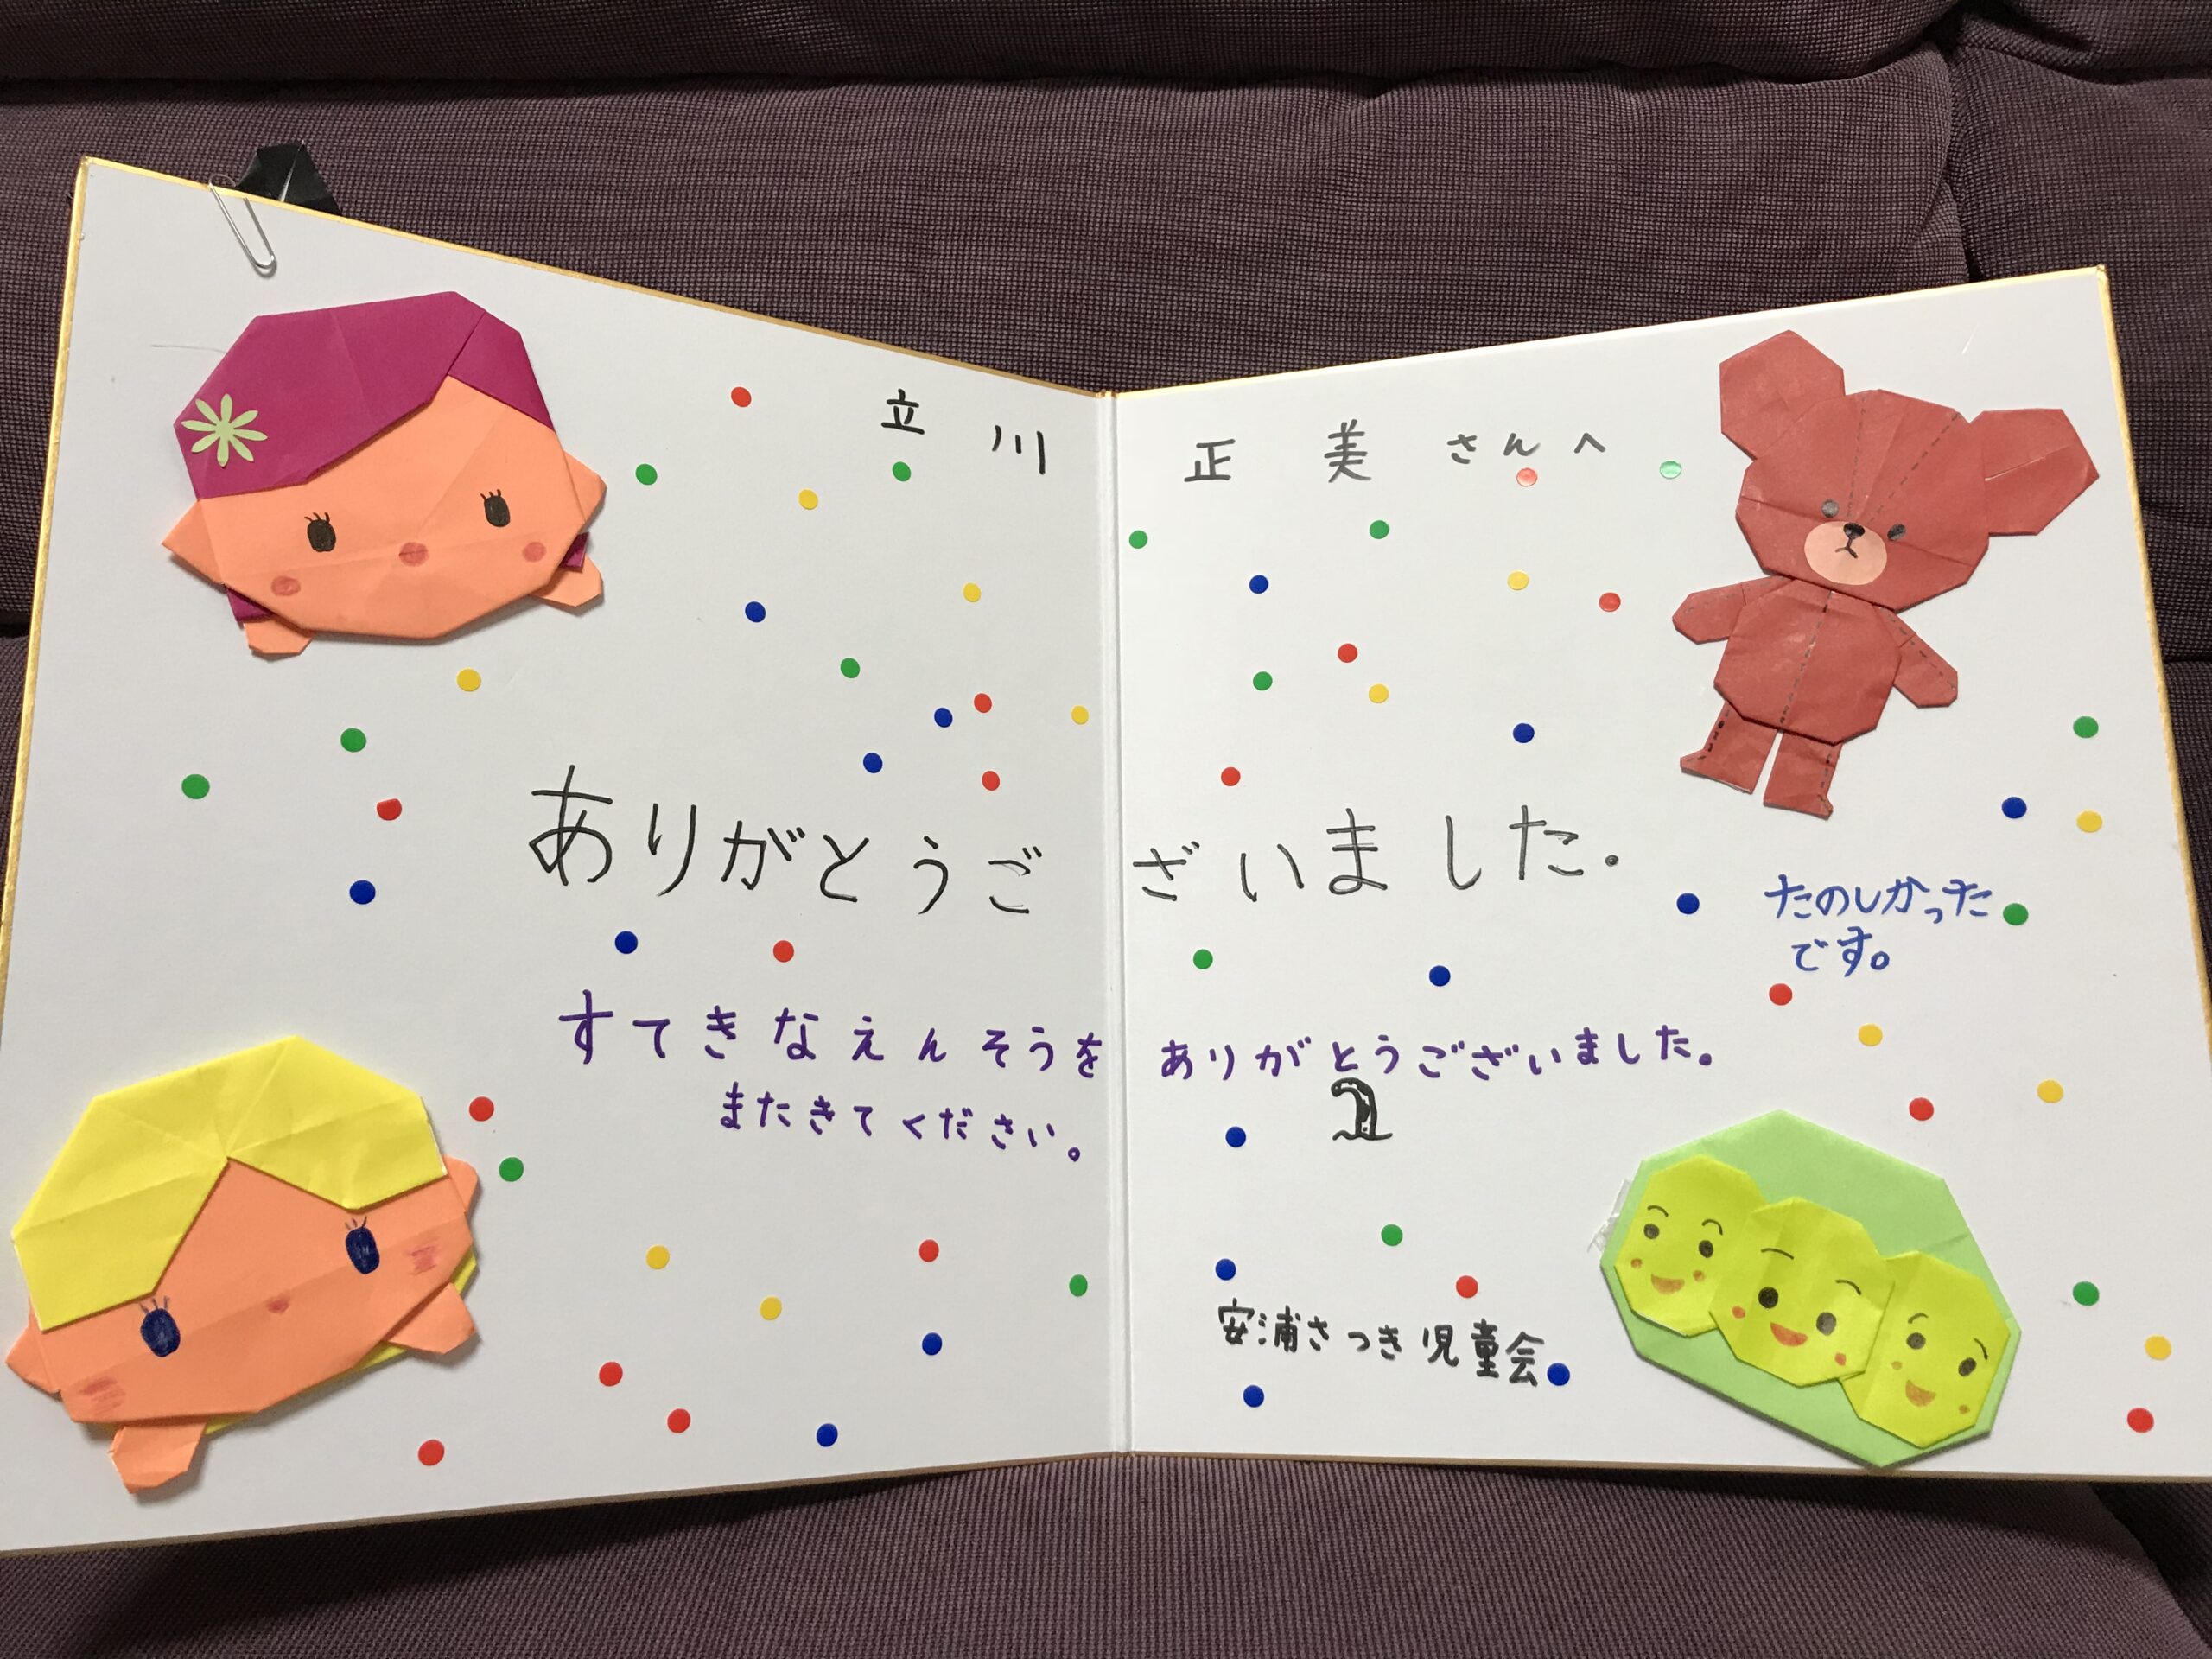 立川正美さんへ
ありがとうございました.
たのしかった
です。
すてきなえんそうをありがとうございました。
またきてください。
安浦さつき児童会